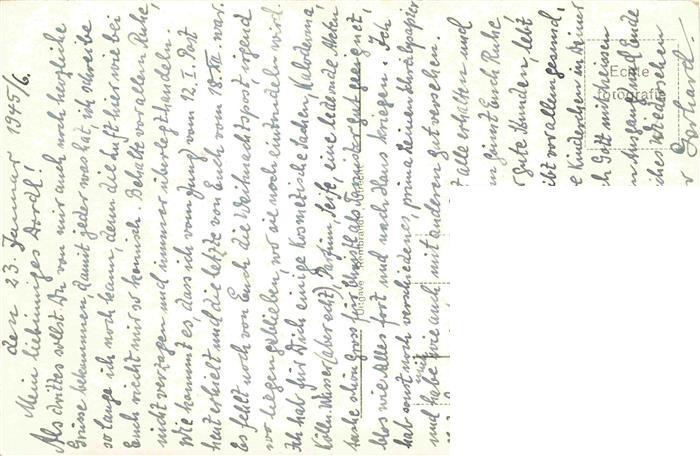 den 23. Januar 1945/6.
Mein liebinniges Dordl!
Als drittes sollst Du von mir auch noch herzliche
Grüsse bekommen, damit jeder was hat, ich schreibe
so lange ich noch kann, denn die Luft hier wie bei
Euch riecht mir so komisch. Behaltet vor allem Ruhe,
nicht verzagen und immer überlegt handeln.
Wie kommt es, dass ich vom Jung vom 12.I. Post
heut erhielt und die letzte von Euch vom 18.XII. war.
Es fehlt noch von Euch die Weihnachtspost, irgend
wo liegen geblieben, wo sie noch eintrudeln wird.
Ich hab für Dich einige kosmetische Sachen, Kaloderma,
Kölln. Wasser (aber echt) Parfüm, Seife, eine lederne Akten
tasche schön gross für Umsatz als Muster gut geeignet,
blos wie Alles fort und nach Haus kriegen. Ich
hab sonst noch verschiedenes, prima feinen Schreibpapier
und habe mich auch mit anderen gut versehen.
t alle erhalten und
n günst Euch Ruhe
r gute Stunden, lebt
ibt vor allem gesund,
e Kinderchen in seiner
h Gott mit seinen
n Ausgang und Ende
ches Wiedersehen
Echte
Fotografie
Uitgave Rembrandt